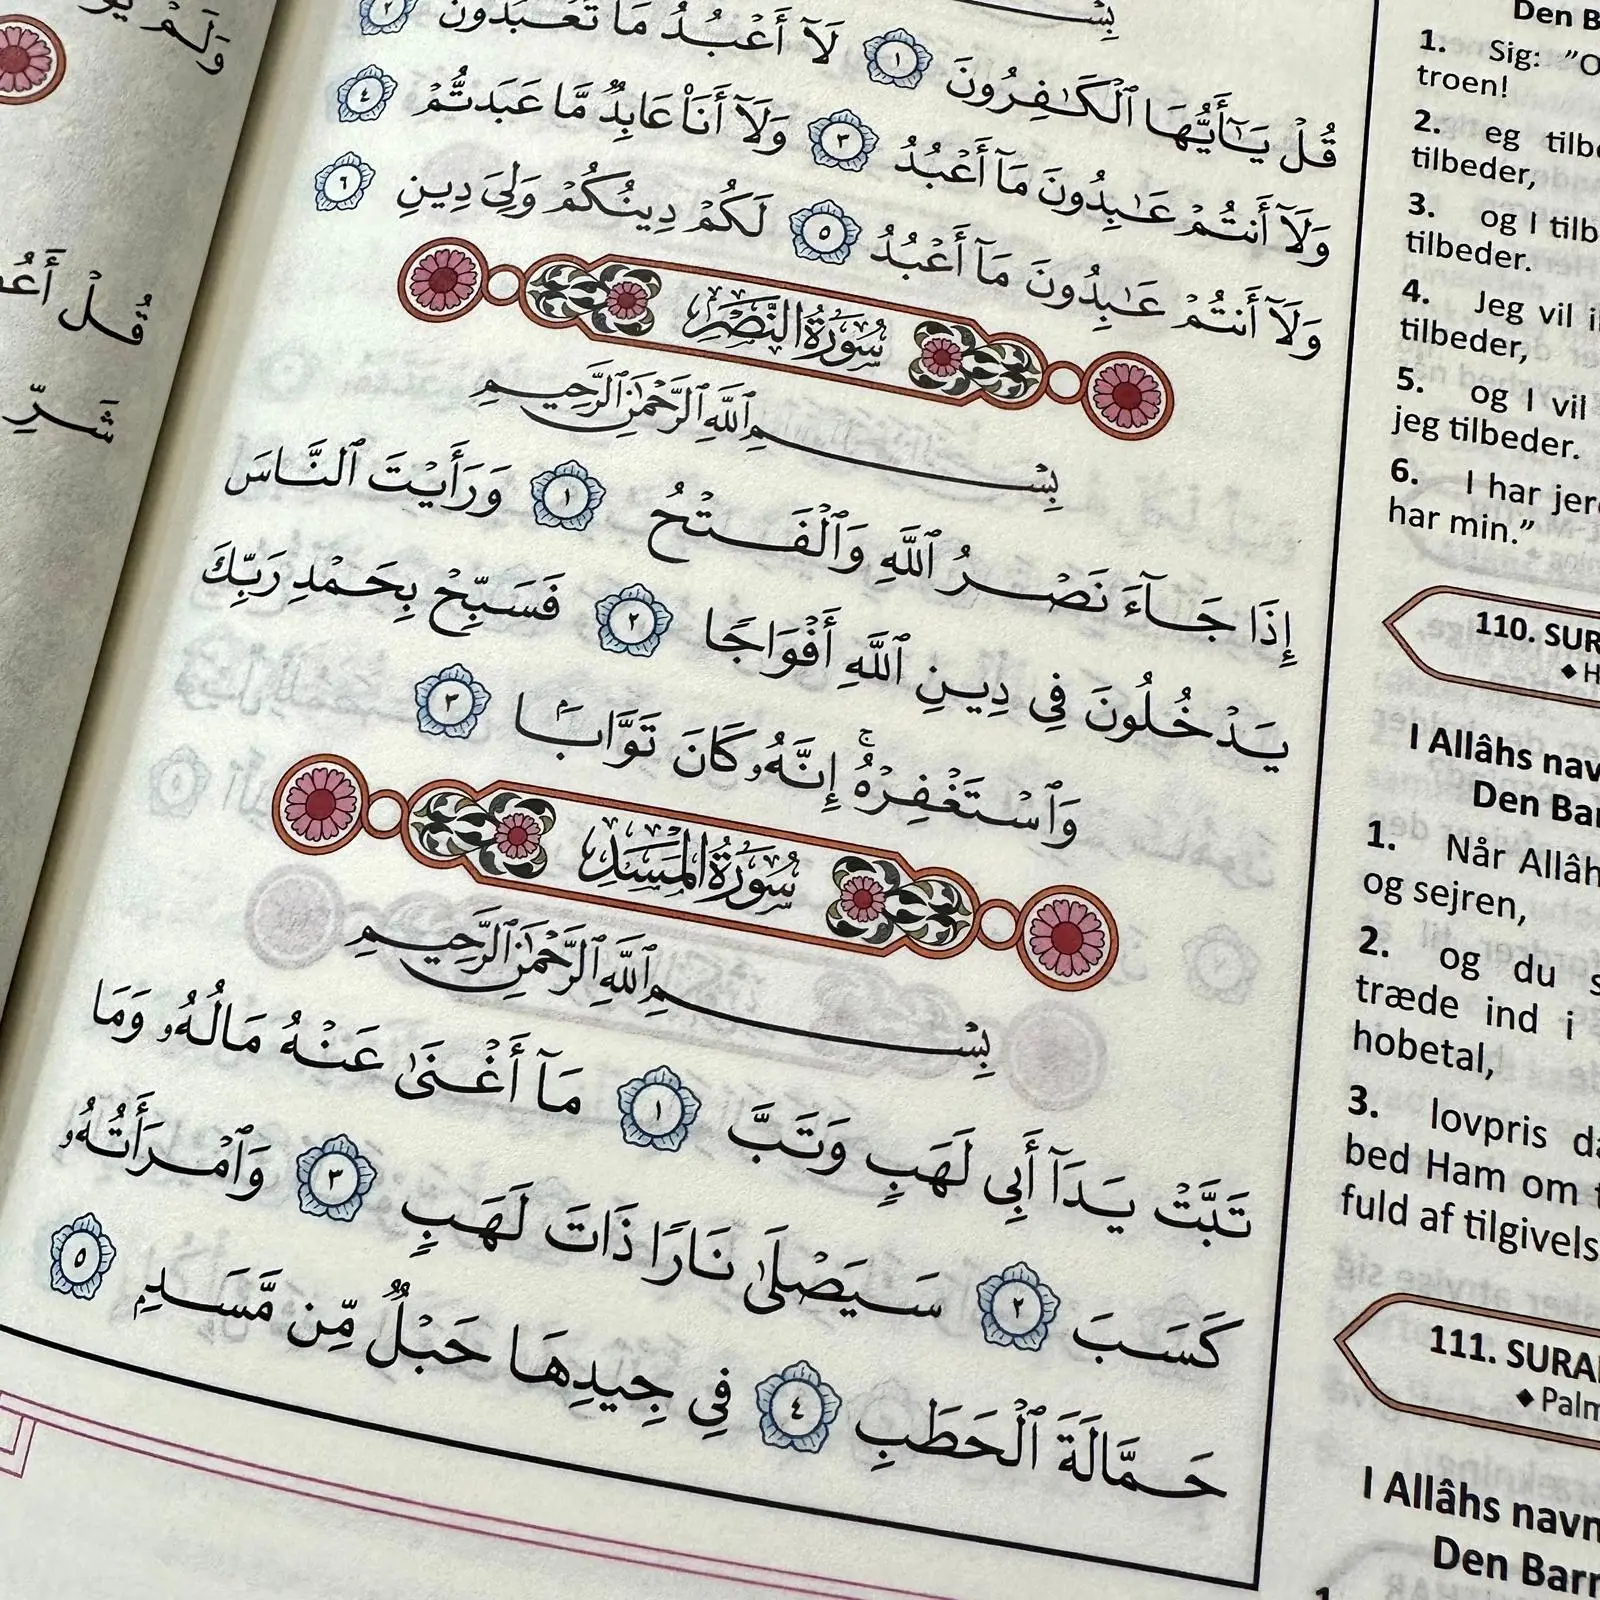 قُلْ يَـٰٓأَيُّهَا ٱلْكَـٰفِرُونَ ١ لَآ أَعْبُدُ مَا تَعْبُدُونَ ٢
وَلَآ أَنتُمْ عَـٰبِدُونَ مَآ أَعْبُدُ ٣ وَلَآ أَنَا۠ عَابِدٌ مَّا عَبَدتُّمْ ٤
وَلَآ أَنتُمْ عَـٰبِدُونَ مَآ أَعْبُدُ ٥ لَكُمْ دِينُكُمْ وَلِىَ دِينِ ٦
سُورَةُ النَّصْرِ
بِسْمِ ٱللَّهِ ٱلرَّحْمَـٰنِ ٱلرَّحِيمِ
إِذَا جَآءَ نَصْرُ ٱللَّهِ وَٱلْفَتْحُ ١ وَرَأَيْتَ ٱلنَّاسَ
يَدْخُلُونَ فِى دِينِ ٱللَّهِ أَفْوَاجًا ٢ فَسَبِّحْ بِحَمْدِ رَبِّكَ
وَٱسْتَغْفِرْهُ ۚ إِنَّهُۥ كَانَ تَوَّابًۢا ٣
سُورَةُ المَسَدِ
بِسْمِ ٱللَّهِ ٱلرَّحْمَـٰنِ ٱلرَّحِيمِ
تَبَّتْ يَدَآ أَبِى لَهَبٍ وَتَبَّ ١ مَآ أَغْنَىٰ عَنْهُ مَالُهُۥ وَمَا
كَسَبَ ٢ سَيَصْلَىٰ نَارًا ذَاتَ لَهَبٍ ٣ وَٱمْرَأَتُهُۥ
حَمَّالَةَ ٱلْحَطَبِ ٤ فِى جِيدِهَا حَبْلٌ مِّن مَّسَدٍۭ ٥
وَلَمْ
قُلْ
شَرِّ
Den
1. Sig:
troen!
2. eg
tilbeder,
3. og I
tilbeder.
4. Jeg vil
tilbeder,
5. og I vil
jeg tilbeder.
6. I har
har min.”
110.
I Allâhs
Den
1. Når
og sejren,
2. og du
træde ind i
hobetal,
3. lovpris
bed Ham om
fuld af
111.
I Allâhs
Den
1.